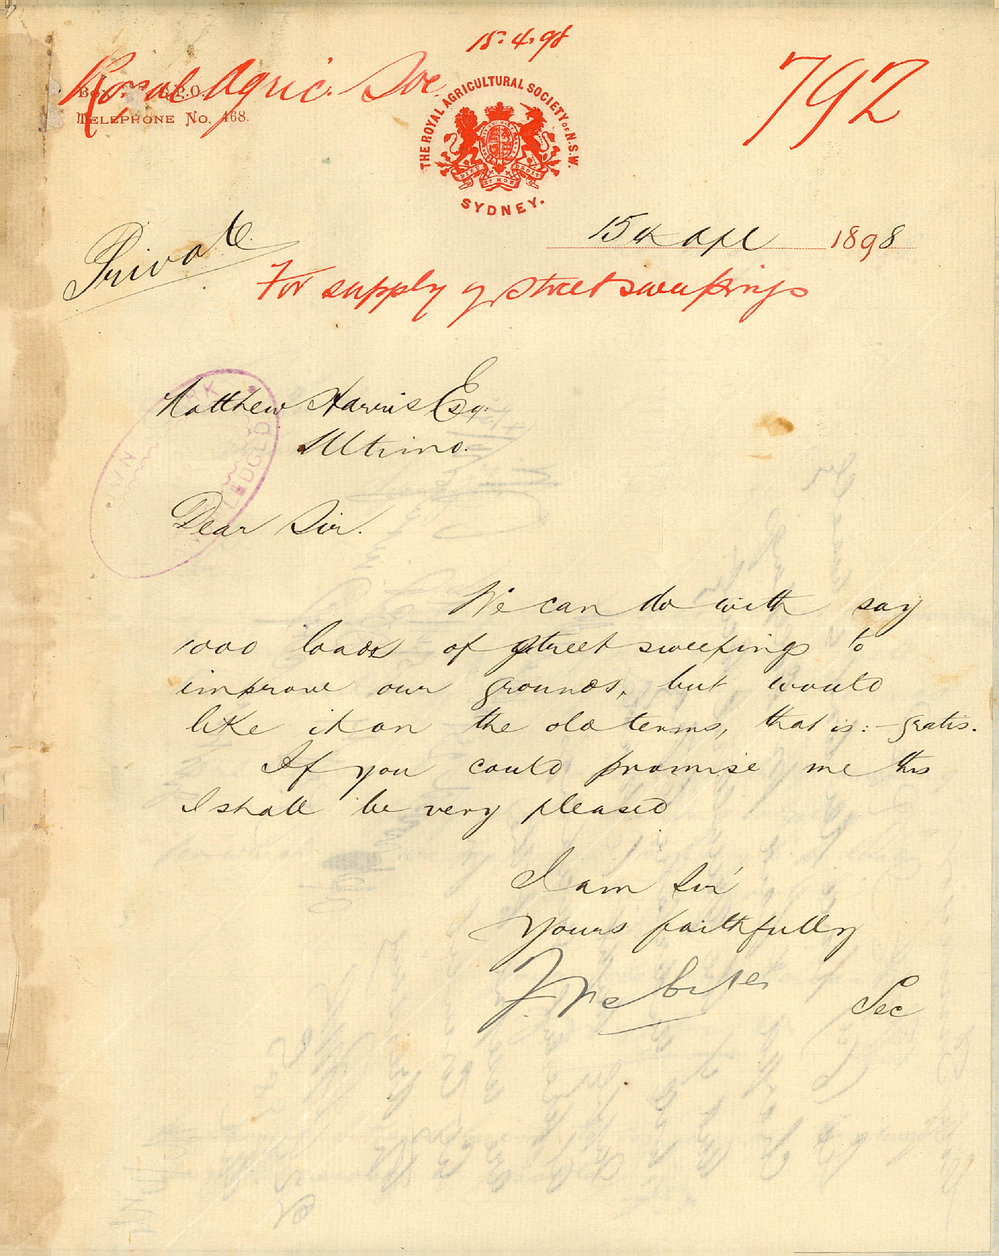 15.4.98
Royal Agric. Soc 792
Box G.P.O.
Telephone No. 468.
THE ROYAL AGRICULTURAL SOCIETY OF N.S.W.
SYDNEY.
15th Apl 1898
Private
For supply of street sweepings
Matthew Harris Esq.
Ultimo.
Dear Sir.
We can do with say
1000 loads of street sweepings to
improve our grounds, but would
like it on the old terms, that is:- gratis.
If you could promise me this
I shall be very pleased
I am Sir
Yours faithfully
F. Webster
Sec